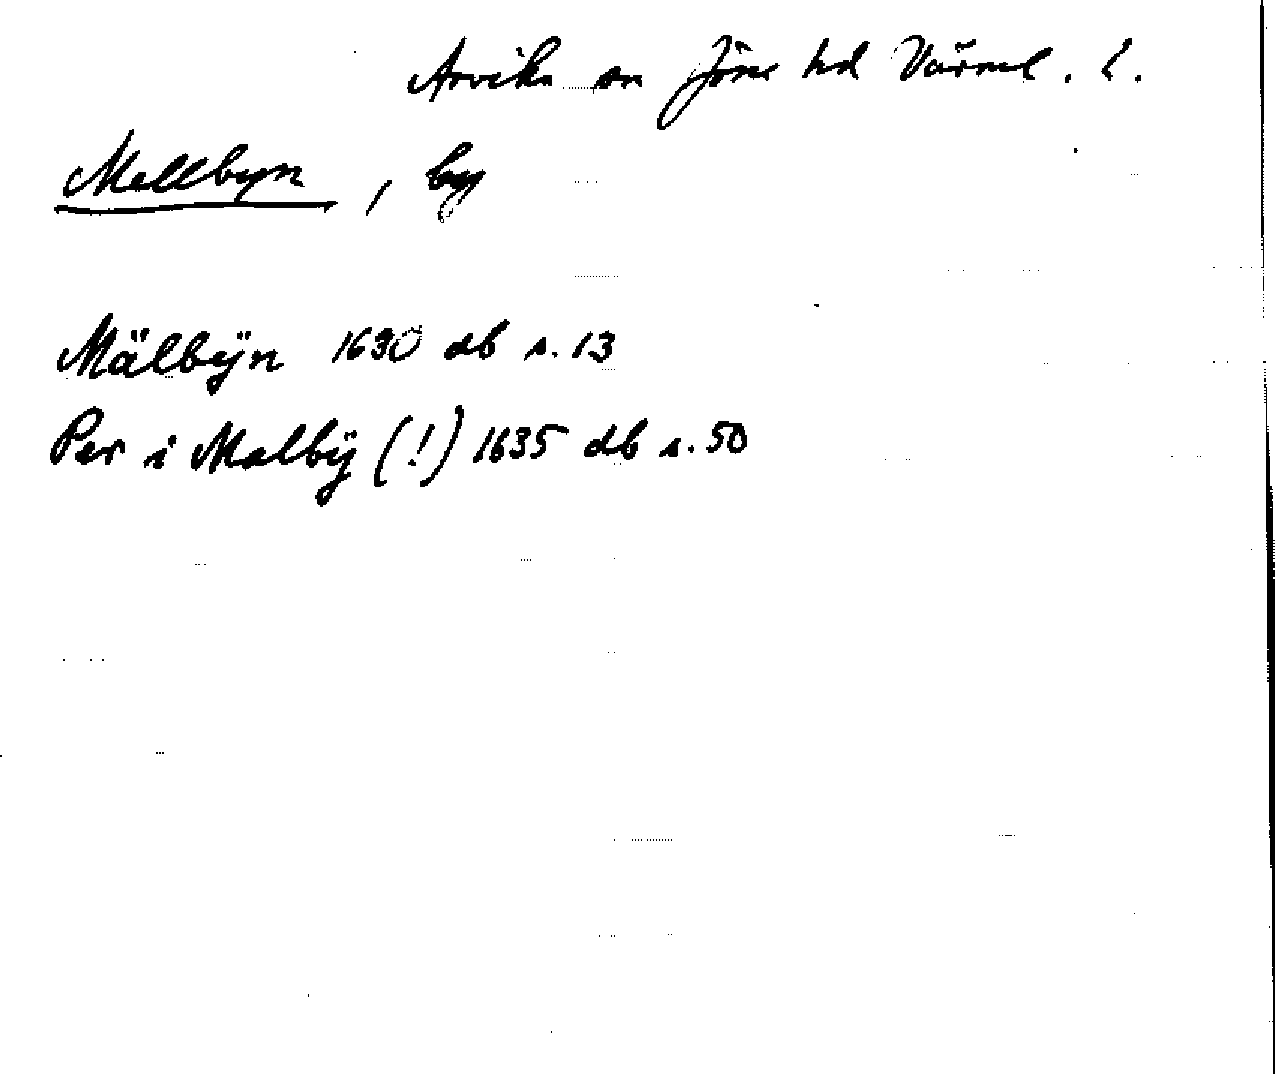 Arvika sn Jöse hd Värml. l.
Mellbyn, by
Mälbÿn 1630 db s. 13
Per i Malbÿ (!) 1635 db s. 50